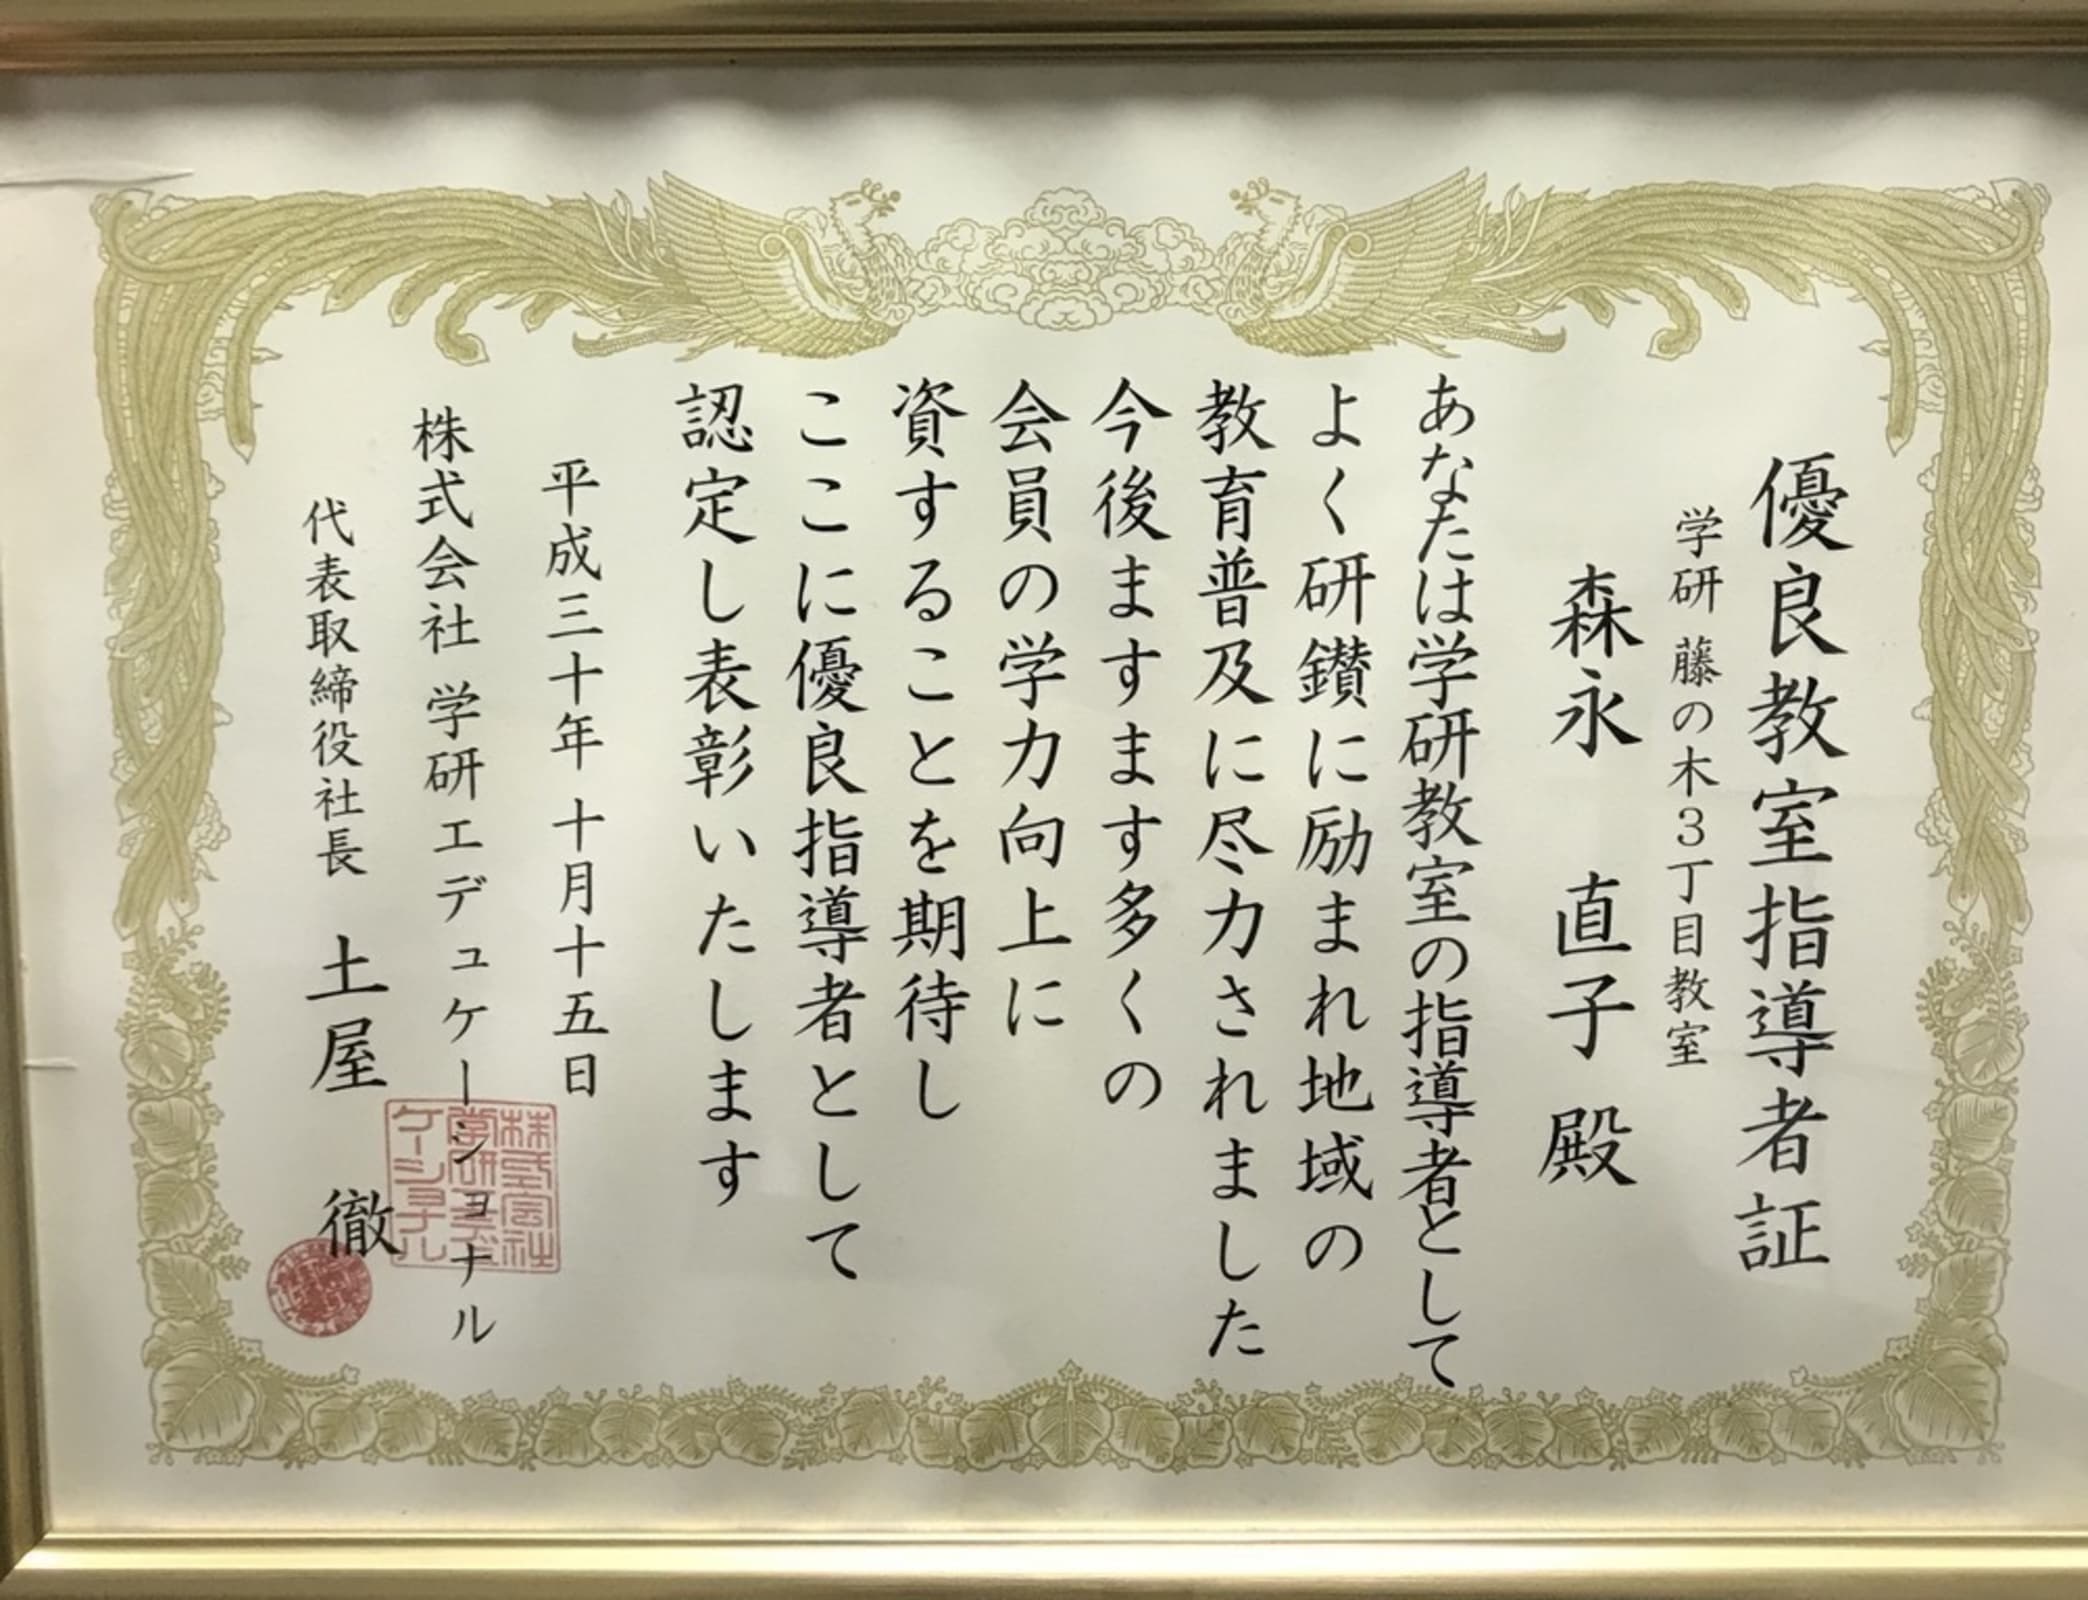 優良教室指導者証
学研 藤の木3丁目教室
森永 直子 殿
あなたは学研教室の指導者として
よく研鑽に励まれ地域の
教育普及に尽力されました
今後ますます多くの
会員の学力向上に
資することを期待し
ここに優良指導者として
認定し表彰いたします
平成三十年 十月十五日
株式会社 学研エデュケーショナル
代表取締役社長 土屋 徹
株式会社
学研エデュ
ケーショナル